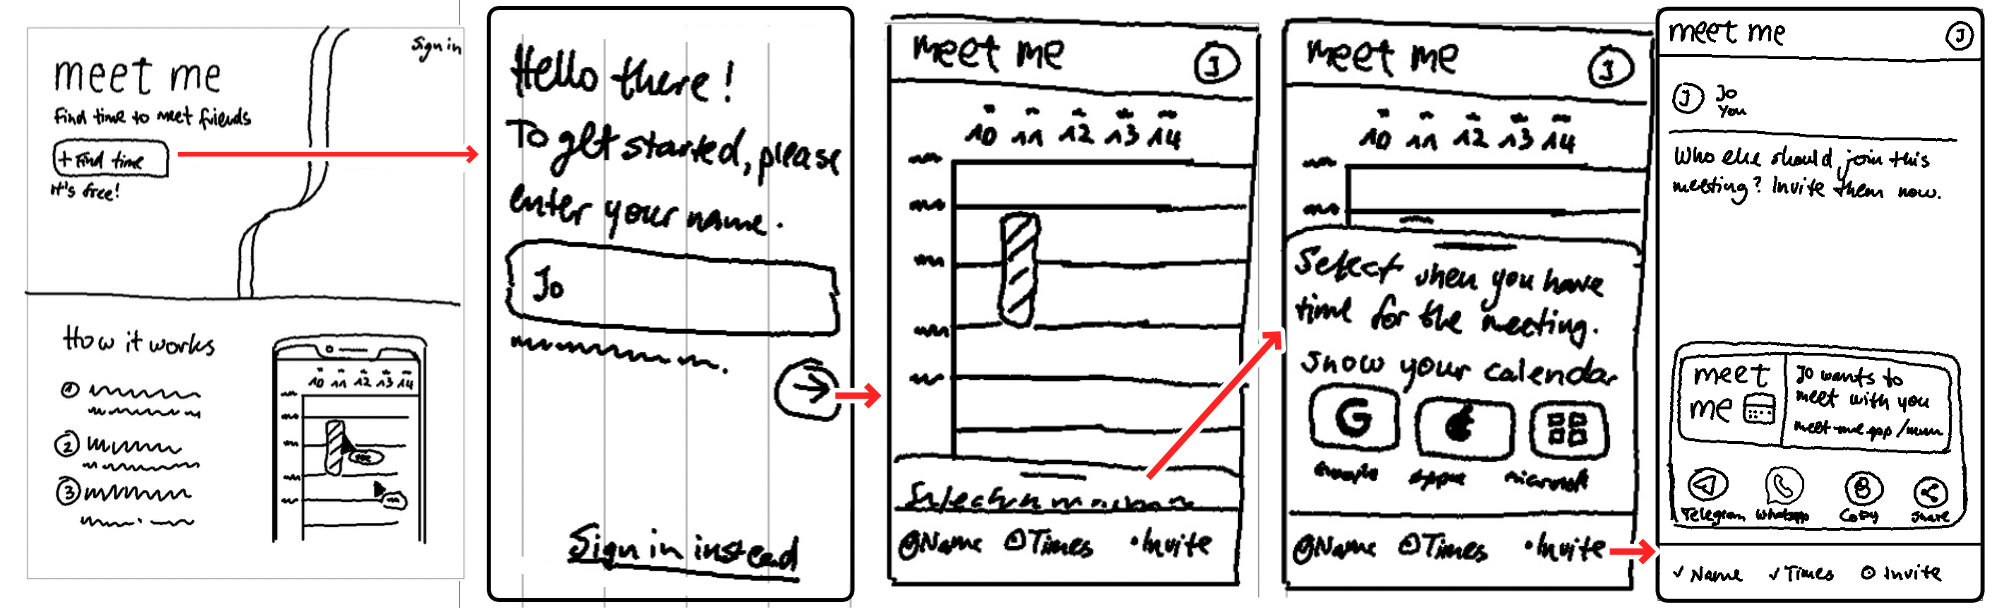 Sign in
meet me
Find time to meet friends
+ Find time
It's free!
How it works
1
2
3
10 11 12 13 14
Hello there!
To get started, please
enter your name.
Jo
Sign in instead
meet me
J
10 11 12 13 14
Name Times Invite
meet me
J
10 11 12 13 14
Select when you have
time for the meeting.
Show your calendar
G
Google Apple Microsoft
Name Times Invite
meet me
J
J Jo
You
Who else should join this
meeting? Invite them now.
meet
me
Jo wants to
meet with you
Telegram Whatsapp Copy Share
✓ Name ✓ Times Invite